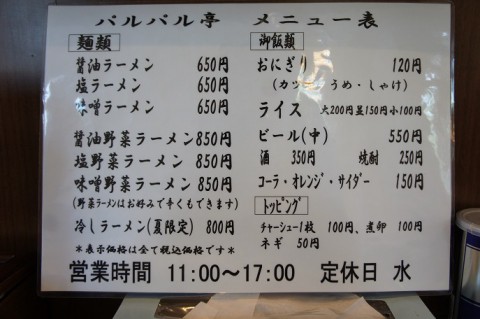 バルバル亭 メニュー表
麺類
醤油ラーメン 650円
塩ラーメン 650円
味噌ラーメン 650円
醤油野菜ラーメン 850円
塩野菜ラーメン 850円
味噌野菜ラーメン 850円
(野菜ラーメンはお好みで辛くもできます)
冷しラーメン(夏限定) 800円
*表示価格は全て税込価格です*
御飯類
おにぎり 120円
(カツオ・うめ・しゃけ)
ライス 大200円並150円小100円
ビール(中) 550円
酒 350円 焼酎 250円
コーラ・オレンジ・サイダー 150円
トッピング
チャーシュー1枚 100円、煮卵 100円
ネギ 50円
営業時間 11:00〜17:00 定休日 水